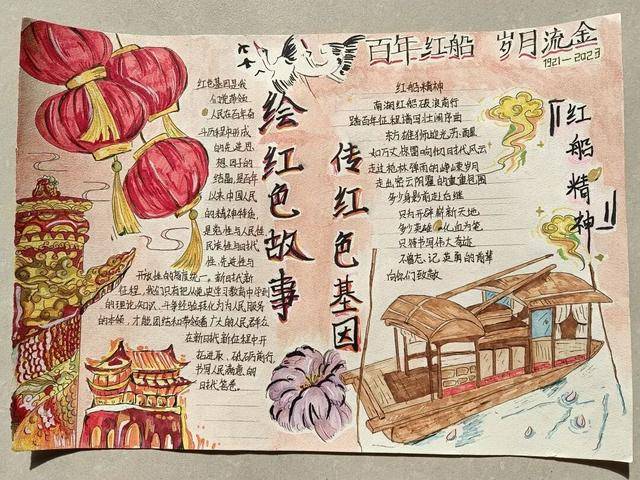 百年红船 岁月流金
1921—2023
绘红色故事
传红色基因
『红船精神』
红色基因是我
们党带领
人民在百年奋
斗历程中形成
的先进思
想因子的
结晶,是百年
以来中国人民
的精神特质,
是党性与人民性
民族性与时代
性、先进性与
开放性的高度统一。新时代新
征程,我们只有把从党史学习教育中学到
的理论知识、斗争经验转化为为人民服务
的本领,才能团结和带领着广大的人民群众
在新时代新征程中开
拓进取、破浪前行
书写人民满意的
时代答卷。
红船精神
南湖红船破浪前行
踏百年征程谱写壮阔序曲
东方雄狮迎光苏醒
如万丈惊雷响彻时代风云
走过枪林弹雨的峥嵘岁月
走出密云阴霾的重重包围
多少身影前赴后继
只为开辟崭新天地
多少英雄以血为笔
只待书写伟大奇迹
不曾忘记英勇的背影
向你们致敬